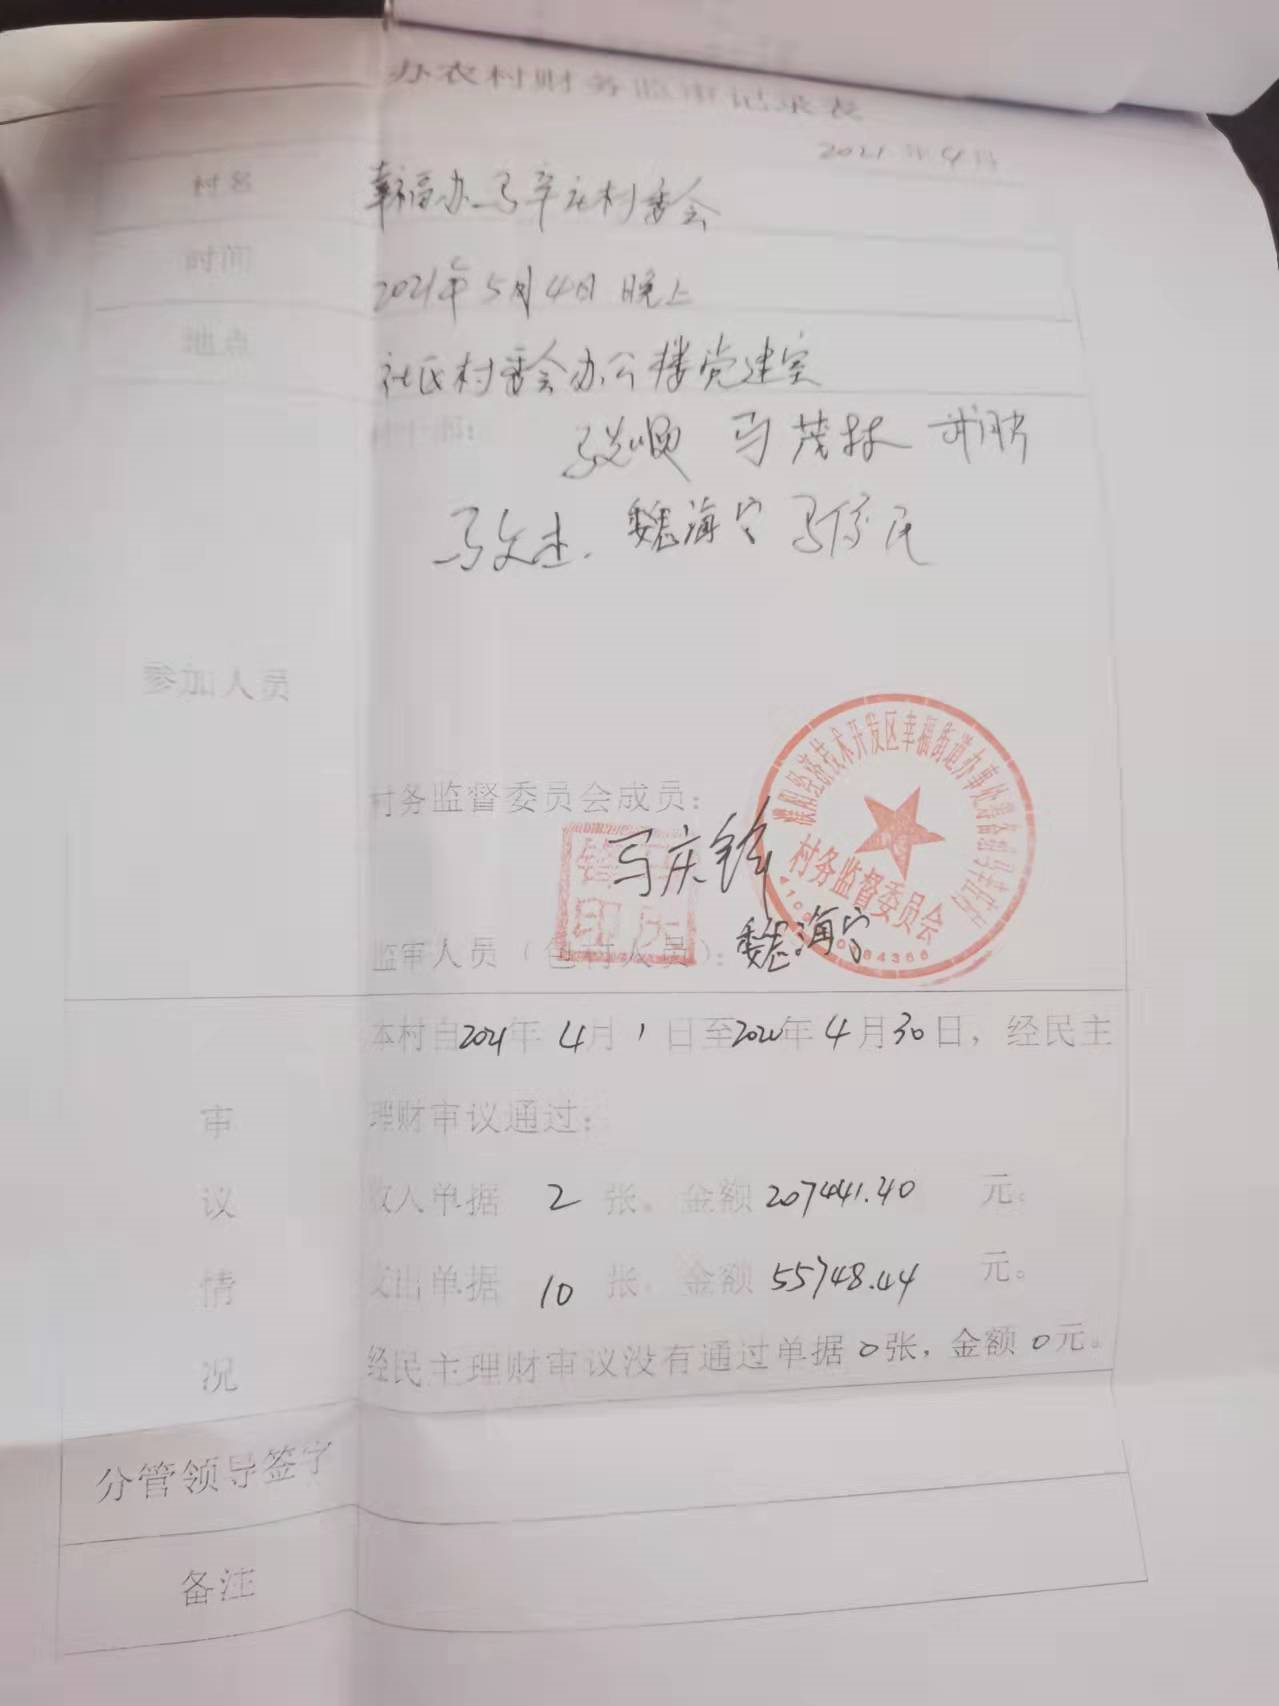 办农村财务监审记录表
2021年4月
村名
幸福办马辛庄村委会
时间
2021年5月4日晚上
地点
社区村委会办公楼党建室
村干部:
马茂林
马文杰. 魏海宁
参加人员
村务监督委员会成员:
马庆锋
监审人员(包村人员): 魏海宁
濮阳经济技术开发区幸福街道办事处
村务监督委员会
本村自2021年4月1日至2021年4月30日, 经民主
理财审议通过:
收入单据 2 张。金额 207441.40 元。
支出单据 10 张, 金额 55748.44 元。
经民主理财审议没有通过单据0张, 金额0元。
审议情况
分管领导签字
备注